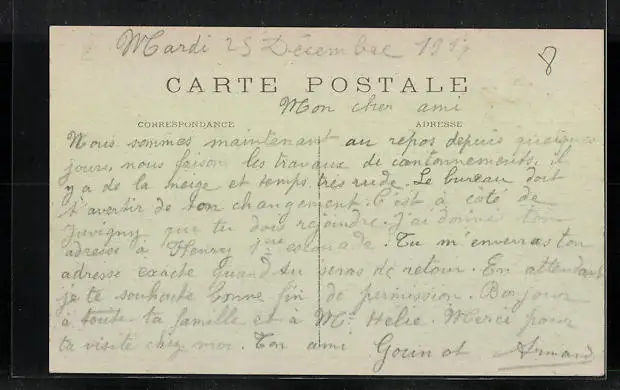 Mardi 25 Décembre 1917
8
CARTE POSTALE
Mon cher ami
CORRESPONDANCE ADRESSE
Nous sommes maintenant au repos depuis quelques
jours, nous faisons les travaux de cantonnements, il
y a de la neige et temps très rude. Le bureau doit
t'avertir de ton changement. C'est à côté de
Juvigny que tu dois rejoindre. J'ai donné ton
adresse à Henry escouade. Tu m'enverras ton
adresse exacte quand tu seras de retour. En attendant
je te souhaite bonne fin de permission. Bonjour
à toute ta famille et à Mr Helie. Merci pour
ta visite chez moi. Ton ami Gounot Armand